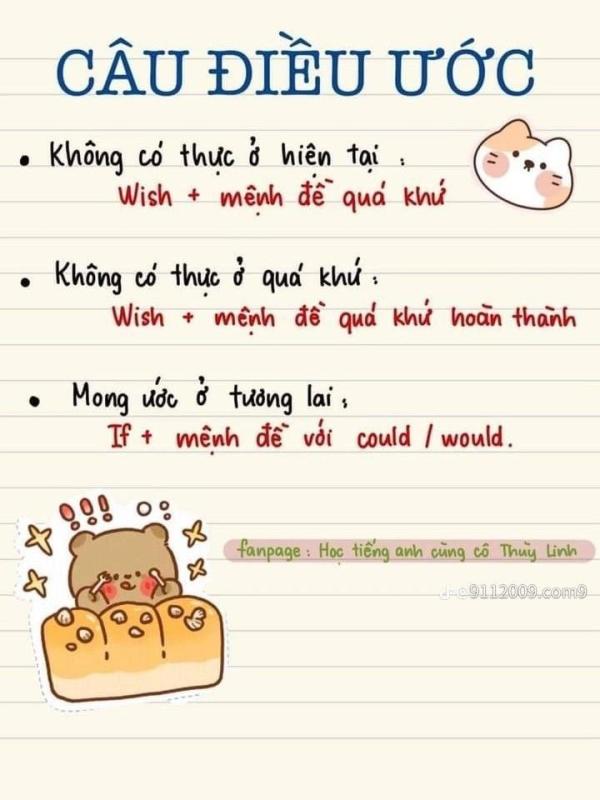 CÂU ĐIỀU ƯỚC
• Không có thực ở hiện tại :
Wish + mệnh đề quá khứ
• Không có thực ở quá khứ :
Wish + mệnh đề quá khứ hoàn thành
• Mong ước ở tương lai :
If + mệnh đề với could / would.
fanpage : Học tiếng anh cùng cô Thùy Linh
9112009.com9